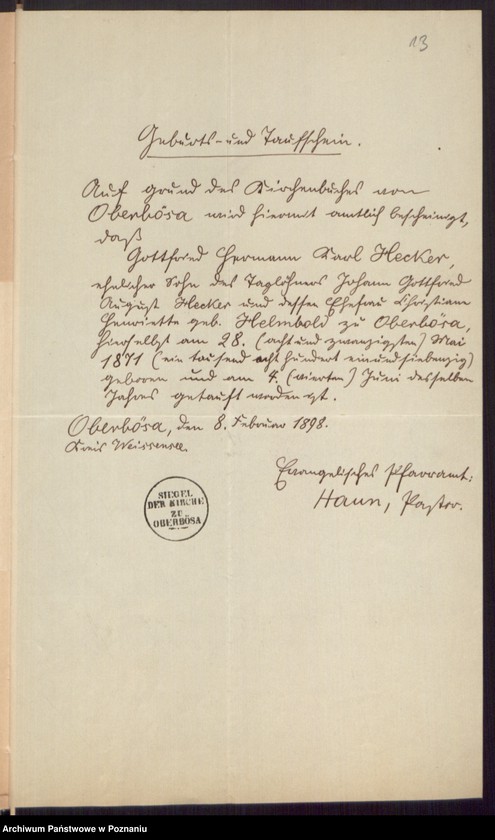 13
Geburts- und Taufschein.
Auf Grund des Kirchenbuches von
Oberbösa wird hiermit amtlich bescheinigt,
daß
Gottfried Hermann Karl Hecker,
ehelicher Sohn des Taglöhners Johann Gottfried
August Hecker und dessen Ehefrau Christiane
Henriette geb. Helmbold zu Oberbösa,
hierselbst am 28. (acht und zwanzigsten) Mai
1871 (ein tausend acht hundert einundsiebenzig)
geboren und am 4. (vierten) Juni desselben
Jahres getauft worden ist.
Oberbösa, den 8. Februar 1898.
Kreis Weissensee.
Evangelisches Pfarramt:
Haun, Pastor.
SIEGEL
DER KIRCHE
ZU
OBERBÖSA
Archiwum Państwowe w Poznaniu